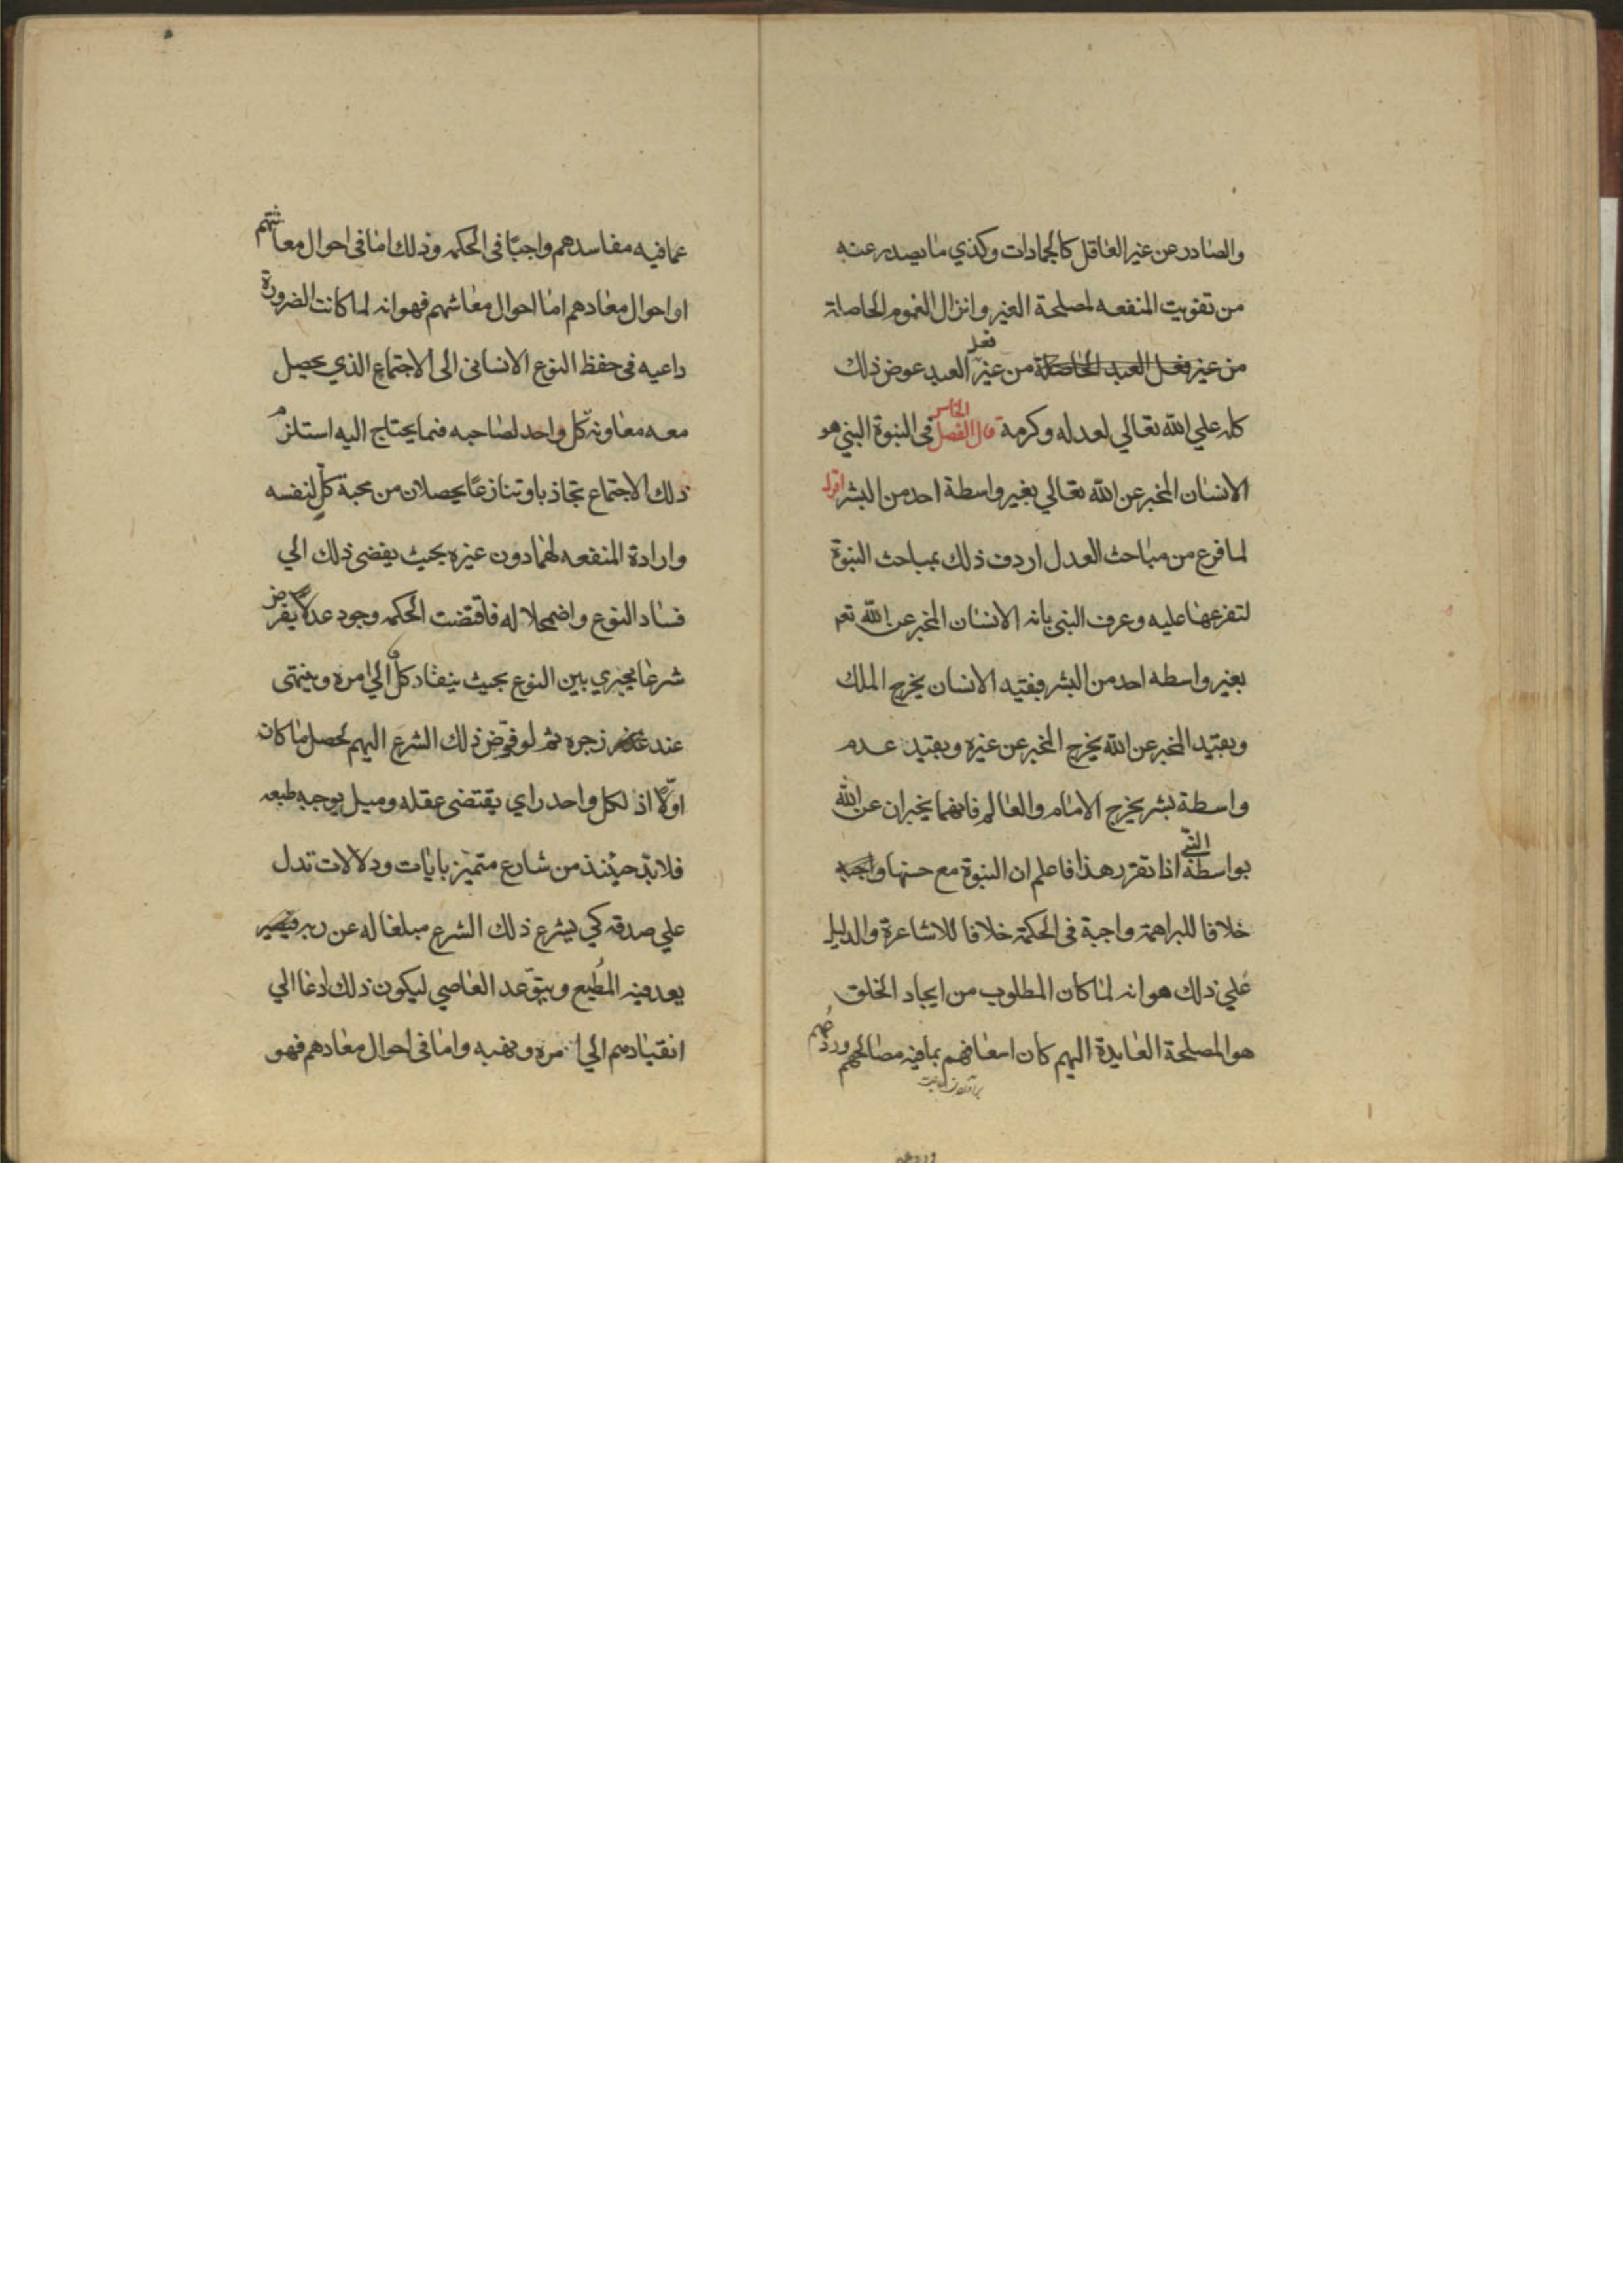 والصادر عن غير العاقل كالجمادات وكذي ما يصدر عنه
من تفويت المنفعه لمصلحة الغير وانزال الغموم الحاصلة
من غير فعل العبد الحاصلة من غير فعل العبد عوض ذلك
كله علي الله تعالي لعدله وكرمه قال الفصل الخامس في النبوة النبي هو
الانسان المخبر عن الله تعالي بغير واسطة احد من البشر اقول
لما فرغ من مباحث العدل اردف ذلك بمباحث النبوة
لتفرعها عليه وعرف النبي بانه الانسان المخبر عن الله تعم
بغير واسطه احد من البشر فبقيد الانسان يخرج الملك
وبقيد المخبر عن الله يخرج المخبر عن غيره وبقيد عدم
واسطة بشر يخرج الامام والعالم فانهما يخبران عن الله
بواسطة النبي اذا تقرر هذا فاعلم ان النبوة مع حسنها واجبة
خلافا للبراهمة واجبة في الحكمة خلافا للاشاعرة والدليل
علي ذلك هو انه لما كان المطلوب من ايجاد الخلق
هو المصلحة العايدة اليهم كان اسعافهم بما فيه مصالحهم وردعهم
عما فيه مفاسدهم واجبًا في الحكمه وذلك اما في احوال معاشهم
او احوال معادهم اما احوال معاشهم فهو انه لما كانت الضرورة
داعيه في حفظ النوع الانساني الى الاجتماع الذي يحصل
معه معاونة كل واحد لصاحبه فيما يحتاج اليه استلزم
ذلك الاجتماع تجاذبا وتنازعًا يحصلان من محبة كلٍ لنفسه
وارادة المنفعه لها دون غيره بحيث يفضي ذلك الي
فساد النوع واضمحلاله فاقتضت الحكمه وجود عدلٍ يفرض
شرعا يجري بين النوع بحيث ينقاد كل الي امره وينتهى
عند زجره ثم لو فوّض ذلك الشرع اليهم لحصل ما كان
اولًا اذ لكل واحد راي يقتضى عقله وميل يوجبه طبعه
فلابدّ حينئذ من شارع متميز بايات ودلالات تدل
علي صدقه كي يشرع ذلك الشرع مبلغا له عن ربه
يعد فيه المُطيع ويتوّعد العاصي ليكون ذلك ادعا الي
انقيادهم الي امره ونهيه واما في احوال معادهم فهو